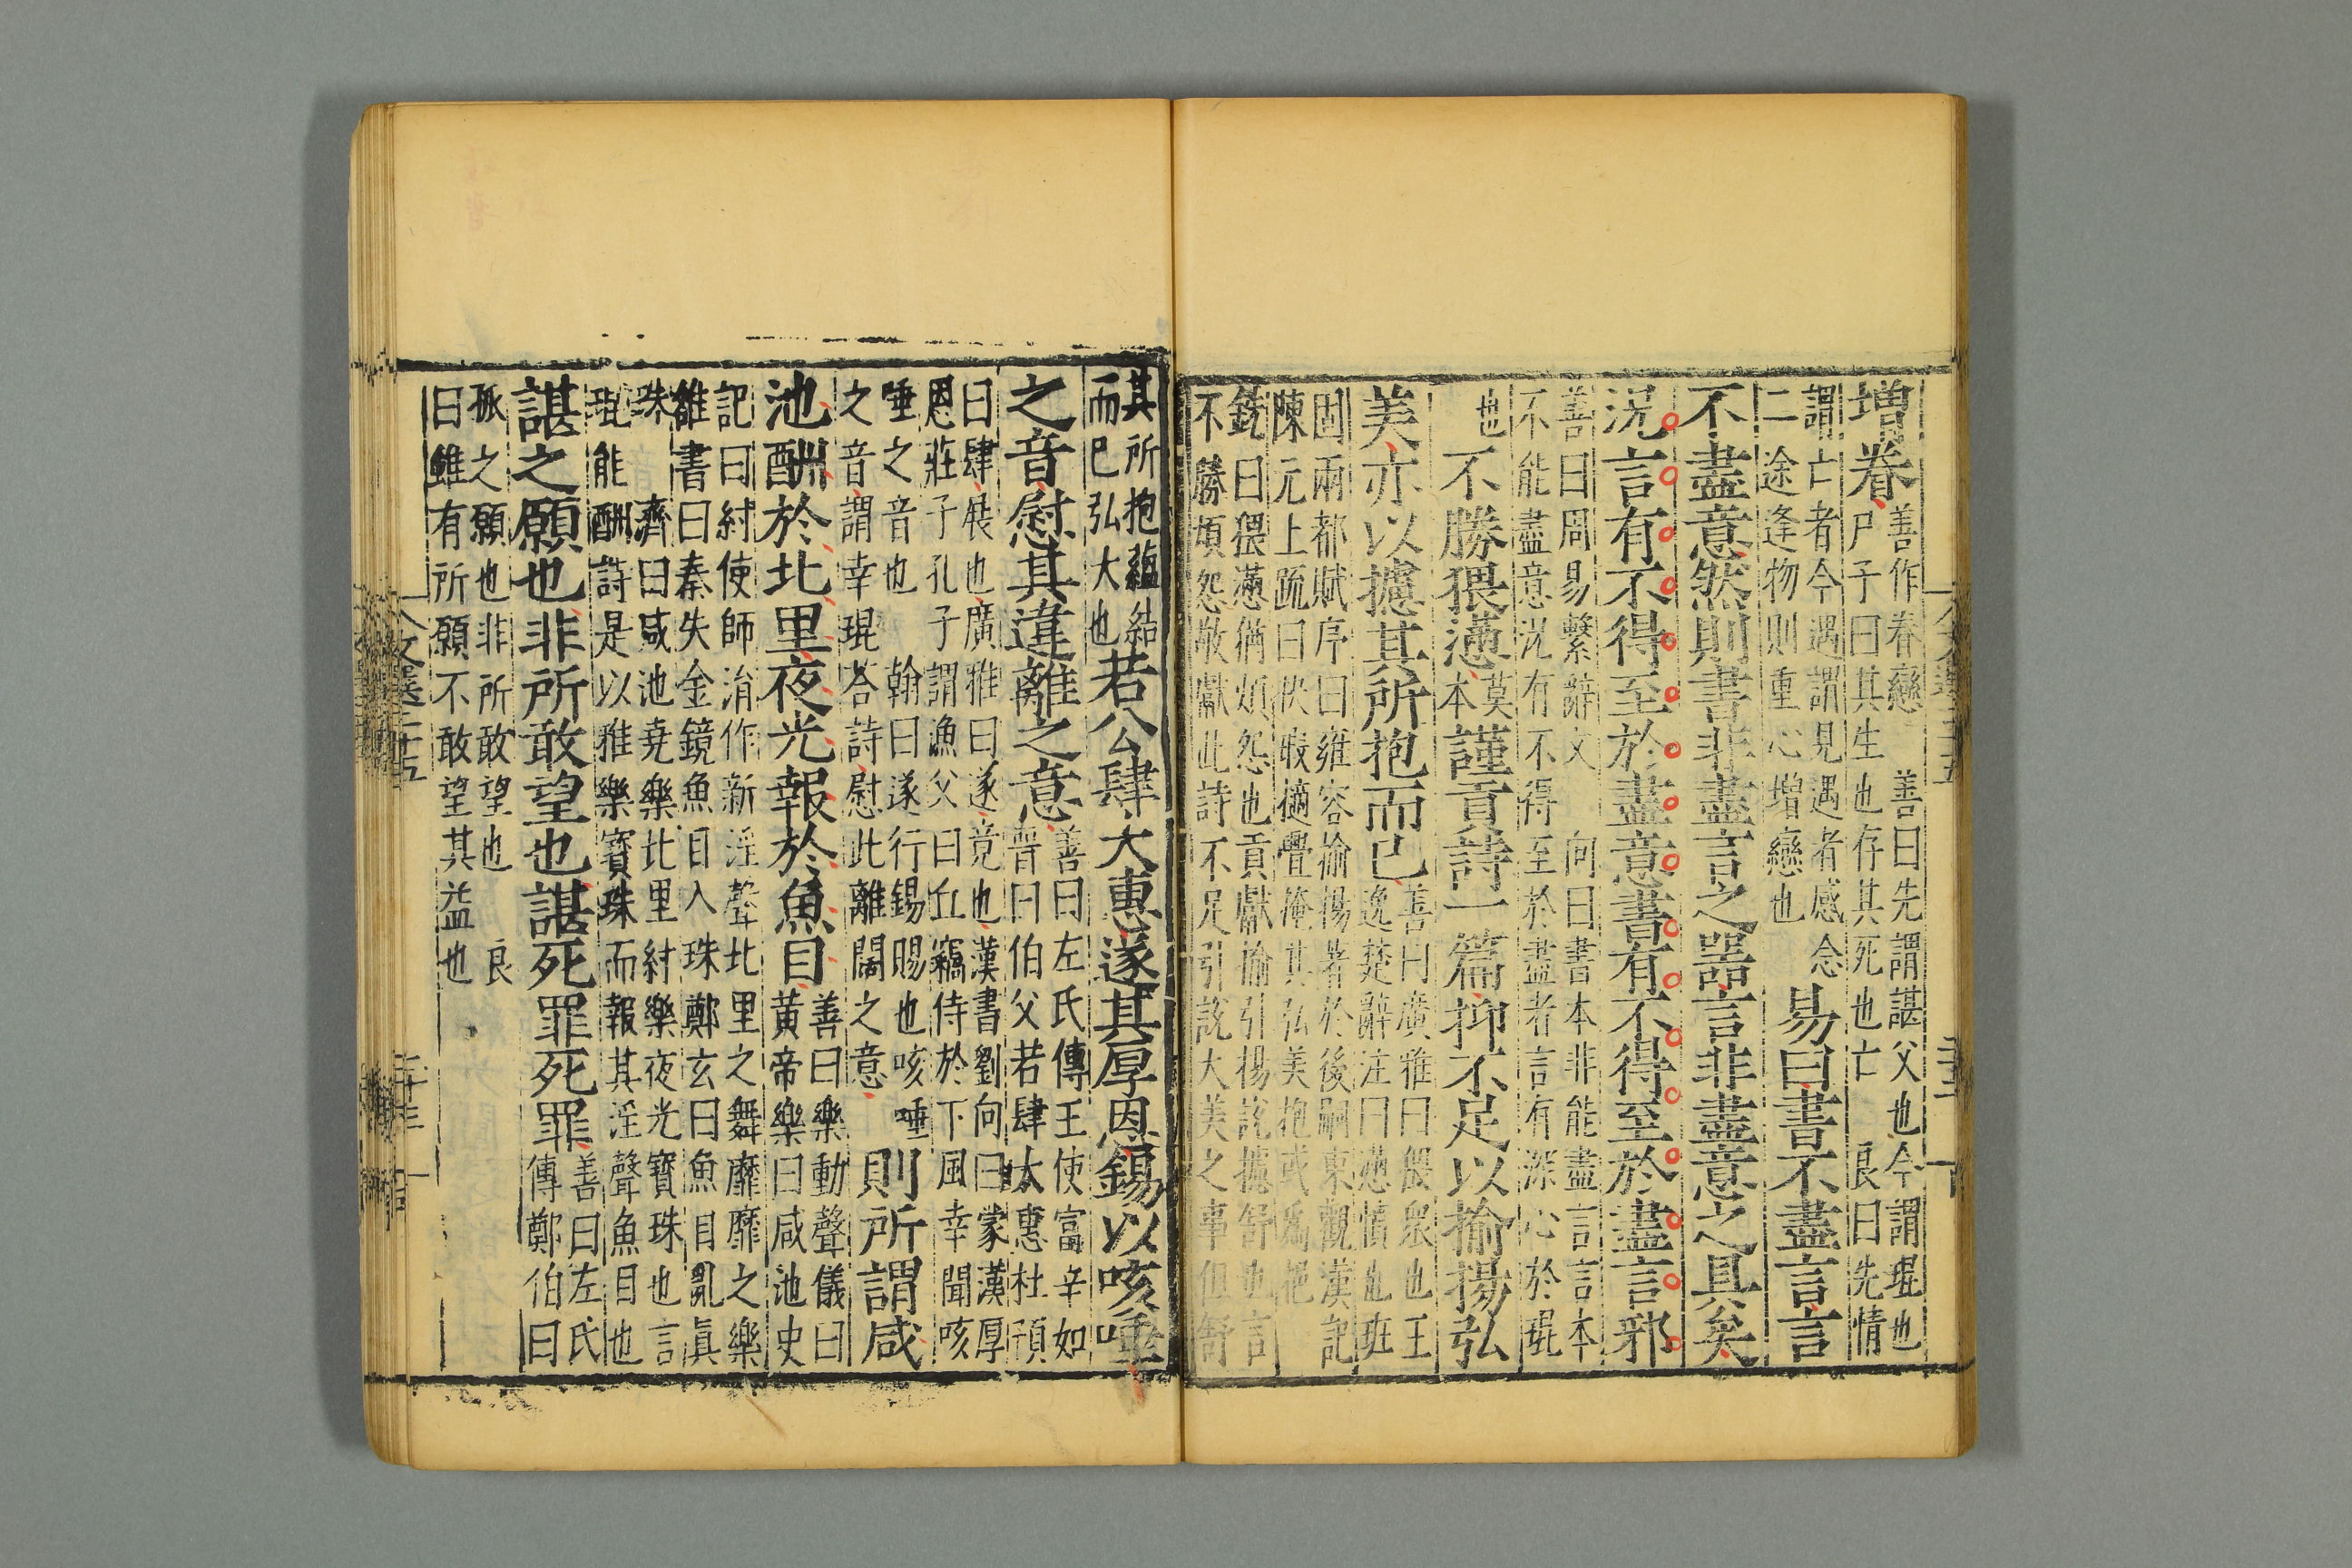 增眷善作眷戀 善曰先謂諶父也今謂琨也
尸子曰其生也存其死也亡 良曰先情
謂亡者今遇謂見遇者感念
二途逢物則重心增戀也
易曰書不盡言言
不盡意然則書非盡言之器言非盡意之具矣
況言有不得至於盡意書有不得至於盡言邪
善曰周易繫辭文 向曰書本非能盡言言本
不能盡意況有不得至於盡者言有深心於琨
也
不勝猥懣本莫謹貢詩一篇抑不足以揄揚弘
美亦以攄其所抱而已善曰廣雅曰猥衆也王
逸楚辭注曰懣憤也班
固兩都賦序曰雍容揄揚著於後嗣東觀漢記
陳元上疏曰掩其弘美抱或爲把
銑曰猥懣猶煩怨也貢獻揄引揚說攄舒也言
不勝煩怨敬獻此詩不足引說大美之事但舒
其所抱蘊結
而已弘大也
若公肆大惠遂其厚恩錫以咳唾
之音慰其違離之意善曰左氏傳王使富辛如
晉曰伯父若肆大惠杜預
曰肆展也廣雅曰遂竟也漢書劉向曰蒙漢厚
恩莊子孔子謂漁父曰丘竊侍於下風幸聞咳
唾之音也 翰曰遂行錫賜也咳唾
之音謂幸琨荅詩慰此離闊之意
則所謂咸
池酬於北里夜光報於魚目善曰樂動聲儀曰
黃帝樂曰咸池史
記曰紂使師涓作新淫聲北里之舞靡靡之樂
雒書曰秦失金鏡魚目入珠鄭玄曰魚目亂眞
珠 濟曰咸池堯樂北里紂樂夜光寶珠也言
琨能酬詩是以雅樂寶珠而報其淫聲魚目也
諶之願也非所敢望也諶死罪死罪善曰左氏
傳鄭伯曰
孤之願也非所敢望也 良
曰雖有所願不敢望其益也
文選二十五